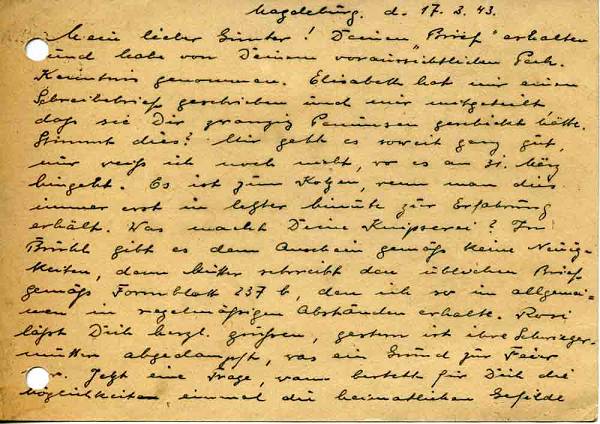 Magdeburg, d. 17.3.43.
Mein lieber Günter! Deinen "Brief" erhalten
und habe von Deinem voraussichtlichen Pech
Kenntnis genommen. Elisabeth hat mir einen
Schreibebrief geschrieben und mir mitgeteilt,
daß sie Dir zwanzig geschickt hätte.
Stimmt dies? Mir geht es soweit ganz gut,
nur weiß ich noch nicht, wo es am 31. März
hingeht. Es ist zum Kotzen, wenn man dies
immer erst in letzter Minute zur Erfahrung
erhält. Was macht Deine Knipserei? In
Brühl gibt es dem Anschein gemäß keine Neuig-
keiten, denn Mutter schreibt den üblichen Brief
gemäß Formblatt 237 b, den ich so im allgemei-
nen in regelmäßigen Abständen erhalte. Rosi
läßt Dich herzl. grüßen, gestern ist ihre Schwieger-
mutter abgedampft, was ein Grund zur Feier
Jetzt eine Frage, wann besteht für Dich die
Möglichkeiten, einmal die heimatlichen Gefilde